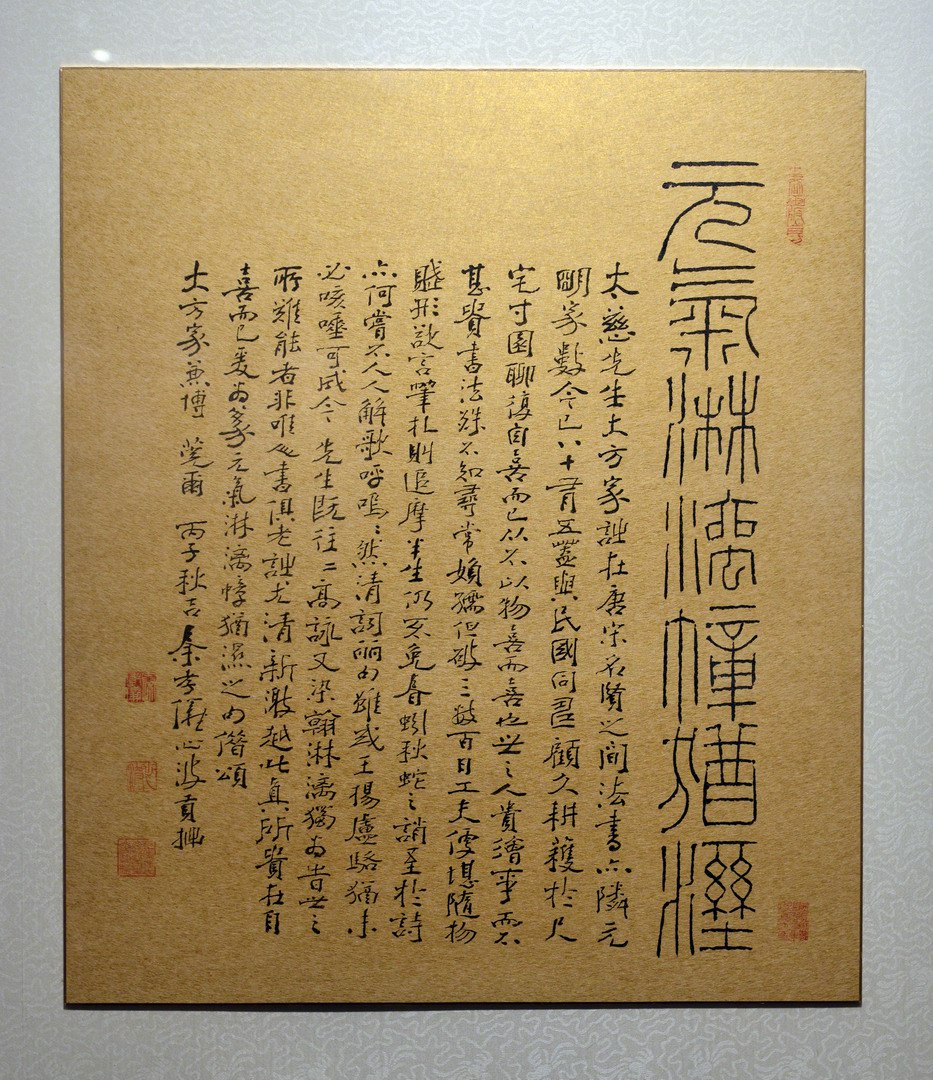 元氣淋漓幛猶溼
大慈先生大方家詩在唐宋名賢之間法書亦隣元
明家數今已八十有五蓋與民國同君顧久耕穫於尺
宅寸園聊復自喜而已以不以物喜而喜也世之人貴繪事而不
甚貴書法殊不知尋常婦孺但破三數百日工夫便堪隨物
賦形欲言筆札則追摩半生仍不免春蚓秋蛇之誚至於詩
亦何嘗不人人解歌呼嗚嗚然清詞麗句雖或王楊盧駱猶未
必咳唾可成今先生既往二高詠又染翰淋漓獨為昔世之
所難能者非唯人書俱老詩尤清新激越此真所貴在自
喜而已爰為篆元氣淋漓幛猶濕之句僭頌
大方家兼博 莞爾 丙子秋吉 心波貢拙